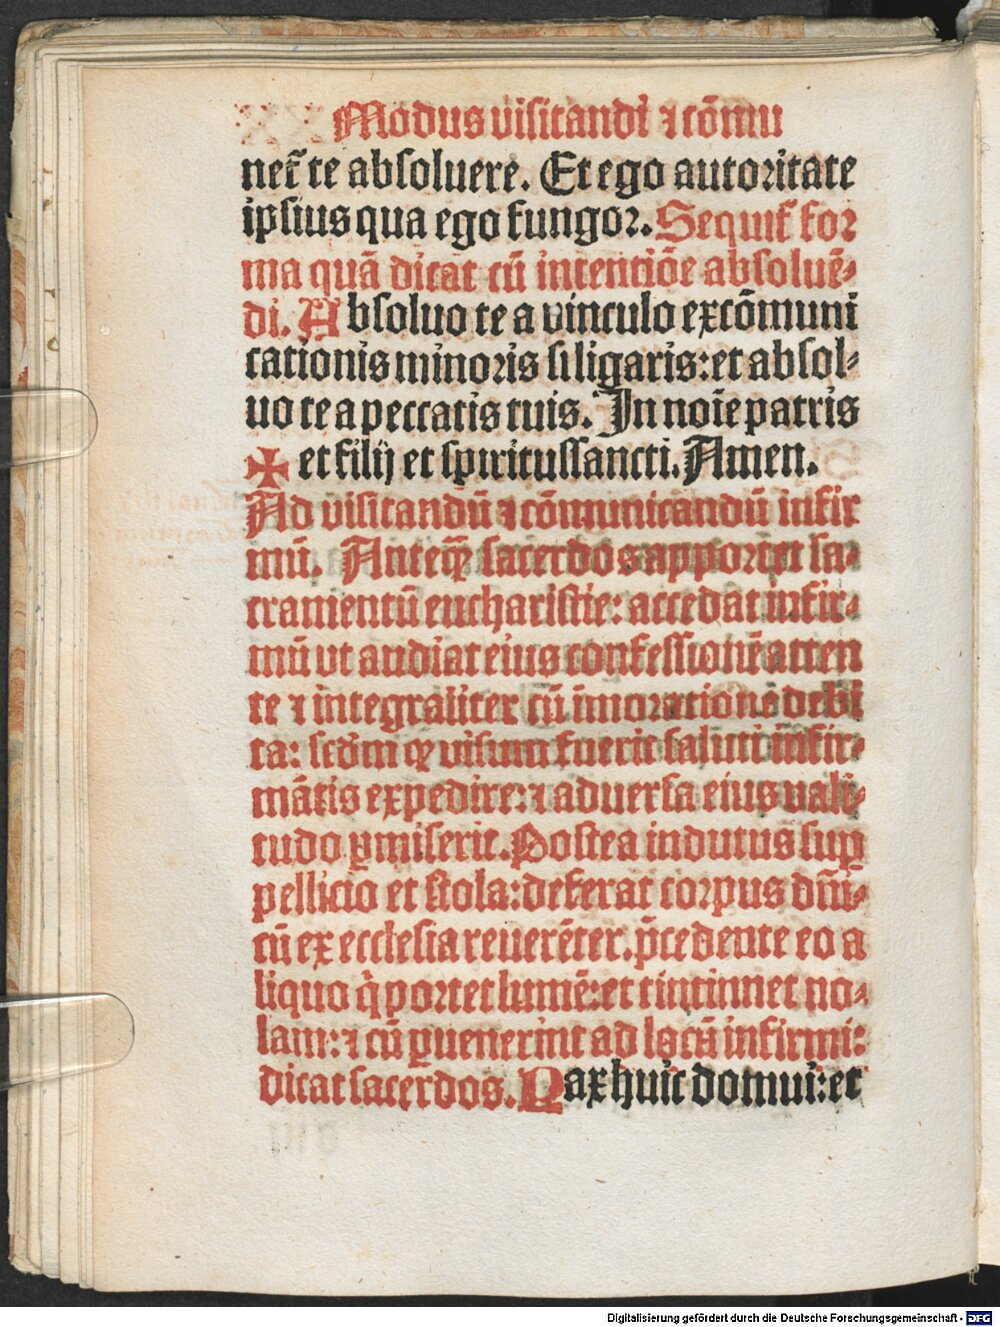 Modus visitandi ⁊ cõmu
net̃ te absoluere. Et ego autoritate
ipsius qua ego fungor. Sequit̃ for
ma quã dicat cũ intentiõe absoluẽ⸗
di. Absoluo te a vinculo excõmuni
cationis minoris si ligaris: et absol⸗
uo te a peccatis tuis. In noĩe patris
✠ et filij et spiritussancti. Amen.
Ad visitandũ ⁊ cõmunicandũ infir
mũ. Anteꝙ̃ sacerdos apportet sa⸗
cramentũ eucharistie: accedat infir⸗
mũ vt audiat eius confessionẽ atten
te ⁊ integraliter cũ ĩmoratione debi
ta: scd̃m ꝙ visum fuerit saluti infir⸗
mãtis expedire: ⁊ aduersa eius vali⸗
tudo ꝑmiserit. Postea indutus suꝑ
pellicio et stola: deferat corpus dñi⸗
cũ ex ecclesia reuerẽter. p̃cedente eo a
liquo q̇ portet lumẽ: et tintinnet no⸗
lam: ⁊ cũ ꝑuenerint ad locũ infirmi:
dicat sacerdos. Pax huic domui: et
Digitalisierung gefördert durch die Deutsche Forschungsgemeinschaft - DFG